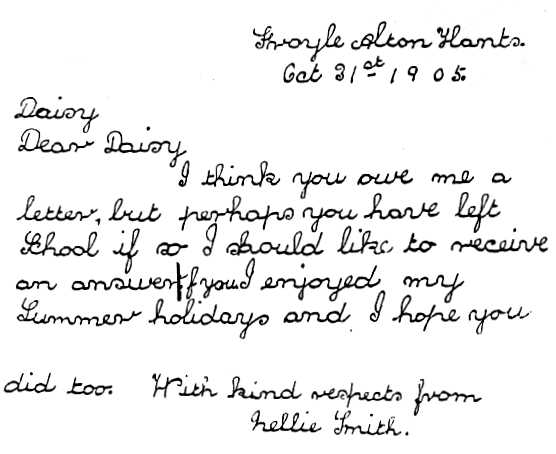 Froyle Alton Hants.
Oct 31st 1905.
Daisy
Dear Daisy
I think you owe me a
letter, but perhaps you have left
School if so I should like to receive
an answer if you. I enjoyed my
Summer holidays and I hope you
did too. With kind respects from
Nellie Smith.